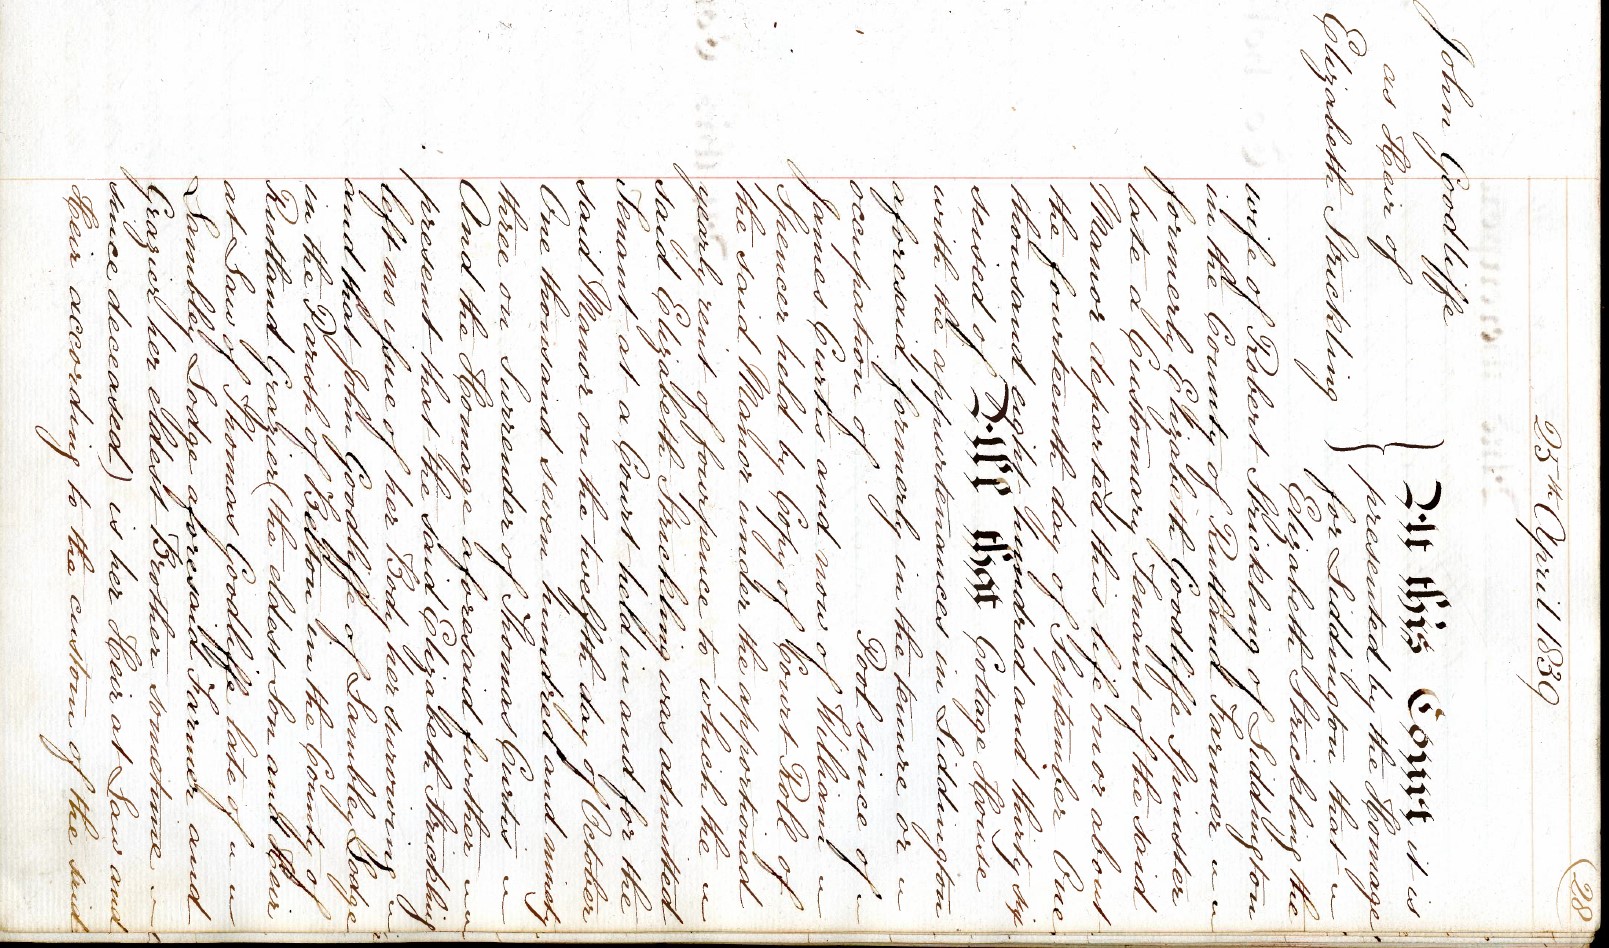 28
25th April 1839
John Goodliffe
as Heir of
Elizabeth Strickling
At this Court it is
presented by the Homage
for Liddington that
Elizabeth Strickling the
wife of Robert Strickling of Liddington
in the County of Rutland Farmer
formerly Elizabeth Goodliffe Spinster
late a Customary Tenant of the said
Manor departed this life on or about
the fourteenth day of September One
thousand eight hundred and thirty six
seised of All that Cottage House
with the appurtenances in Liddington
aforesaid formerly in the tenure or
occupation of Pool since of
James Curtis and now of William
Spencer held by Copy of Court Roll of
the said Manor under the apportioned
yearly rent of fourpence to which the
said Elizabeth Strickling was admitted
Tenant at a Court held in and for the
said Manor on the twelfth day of October
One thousand seven hundred and ninety
three on Surrender of Thomas Curtis
And the Homage aforesaid further
present that the said Elizabeth Strickling
left no issue of her Body her surviving
and that John Goodliffe of Lambley Lodge
in the Parish of Belton in the County of
Rutland Grazier (the eldest Son and Heir
at Law of Thomas Goodliffe late of
Lambley Lodge aforesaid Farmer and
Grazier her eldest Brother sometime
since deceased) is her Heir at Law and
Heir according to the custom of the said